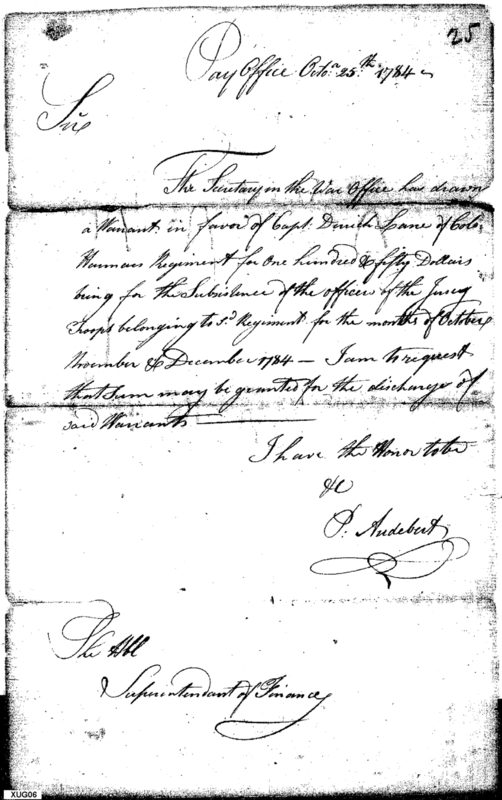 25
Pay Office Octo.r 25.th 1784
Sir
The Secretary in the War Office has drawn
a Warrant in favor of Capt. Lane of Colo.
Harmars Regiment for One hundred & fifty Dollars
being for the Subsistence of the officers of the Jersey
Troops belonging to s.d Regiment for the months of October
November & December 1784 — I am to request
that Sum may be granted for the discharge of
said Warrants
I have the Honor to be
&c
P. Audebert
The Hbl
Superentendant of Finance
XUG06